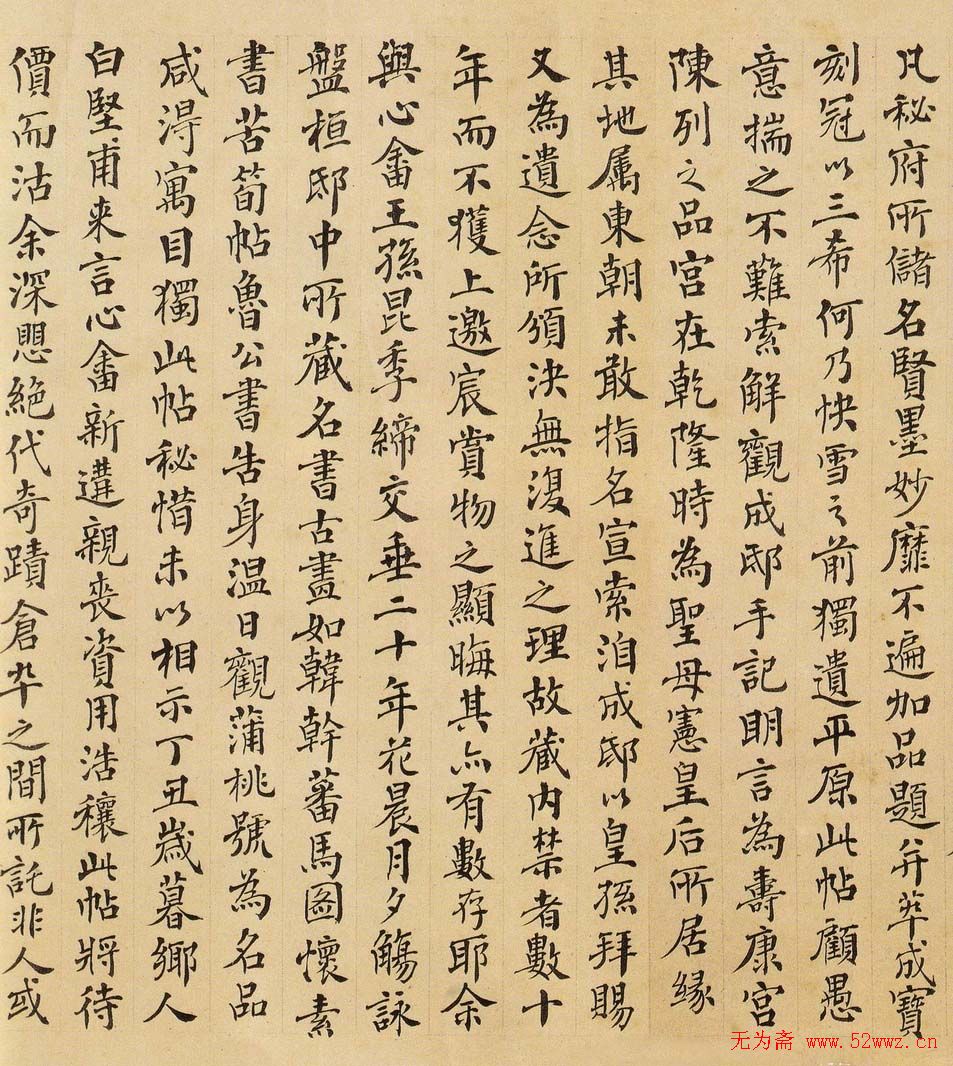 凡秘府所儲名賢墨妙靡不遍加品題并萃成寶
刻冠以三希何乃快雪之前獨遺平原此帖顧愚
意揣之不難索解觀成邸手記明言為壽康宮
陳列之品宮在乾隆時為聖母憲皇后所居緣
其地属東朝未敢指名宣索洎成邸以皇孫拜賜
又為遺念所頒決無復進之理故藏内禁者數十
年而不獲上邀宸賞物之顯晦其亦有數存耶余
與心畬王孫昆季締交垂二十年花晨月夕觴詠
盤桓邸中所藏名書古畫如韓幹蕃馬圖懷素
書苦筍帖魯公書告身溫日觀蒲桃號為名品
咸得寓目獨此帖秘惜未以相示丁丑歲暮鄉人
白堅甫来言心畬新遘親喪資用浩穰此帖將待
價而沽余深愳絕代奇蹟倉卒之間所託非人或
无为斋 www.52wwz.cn